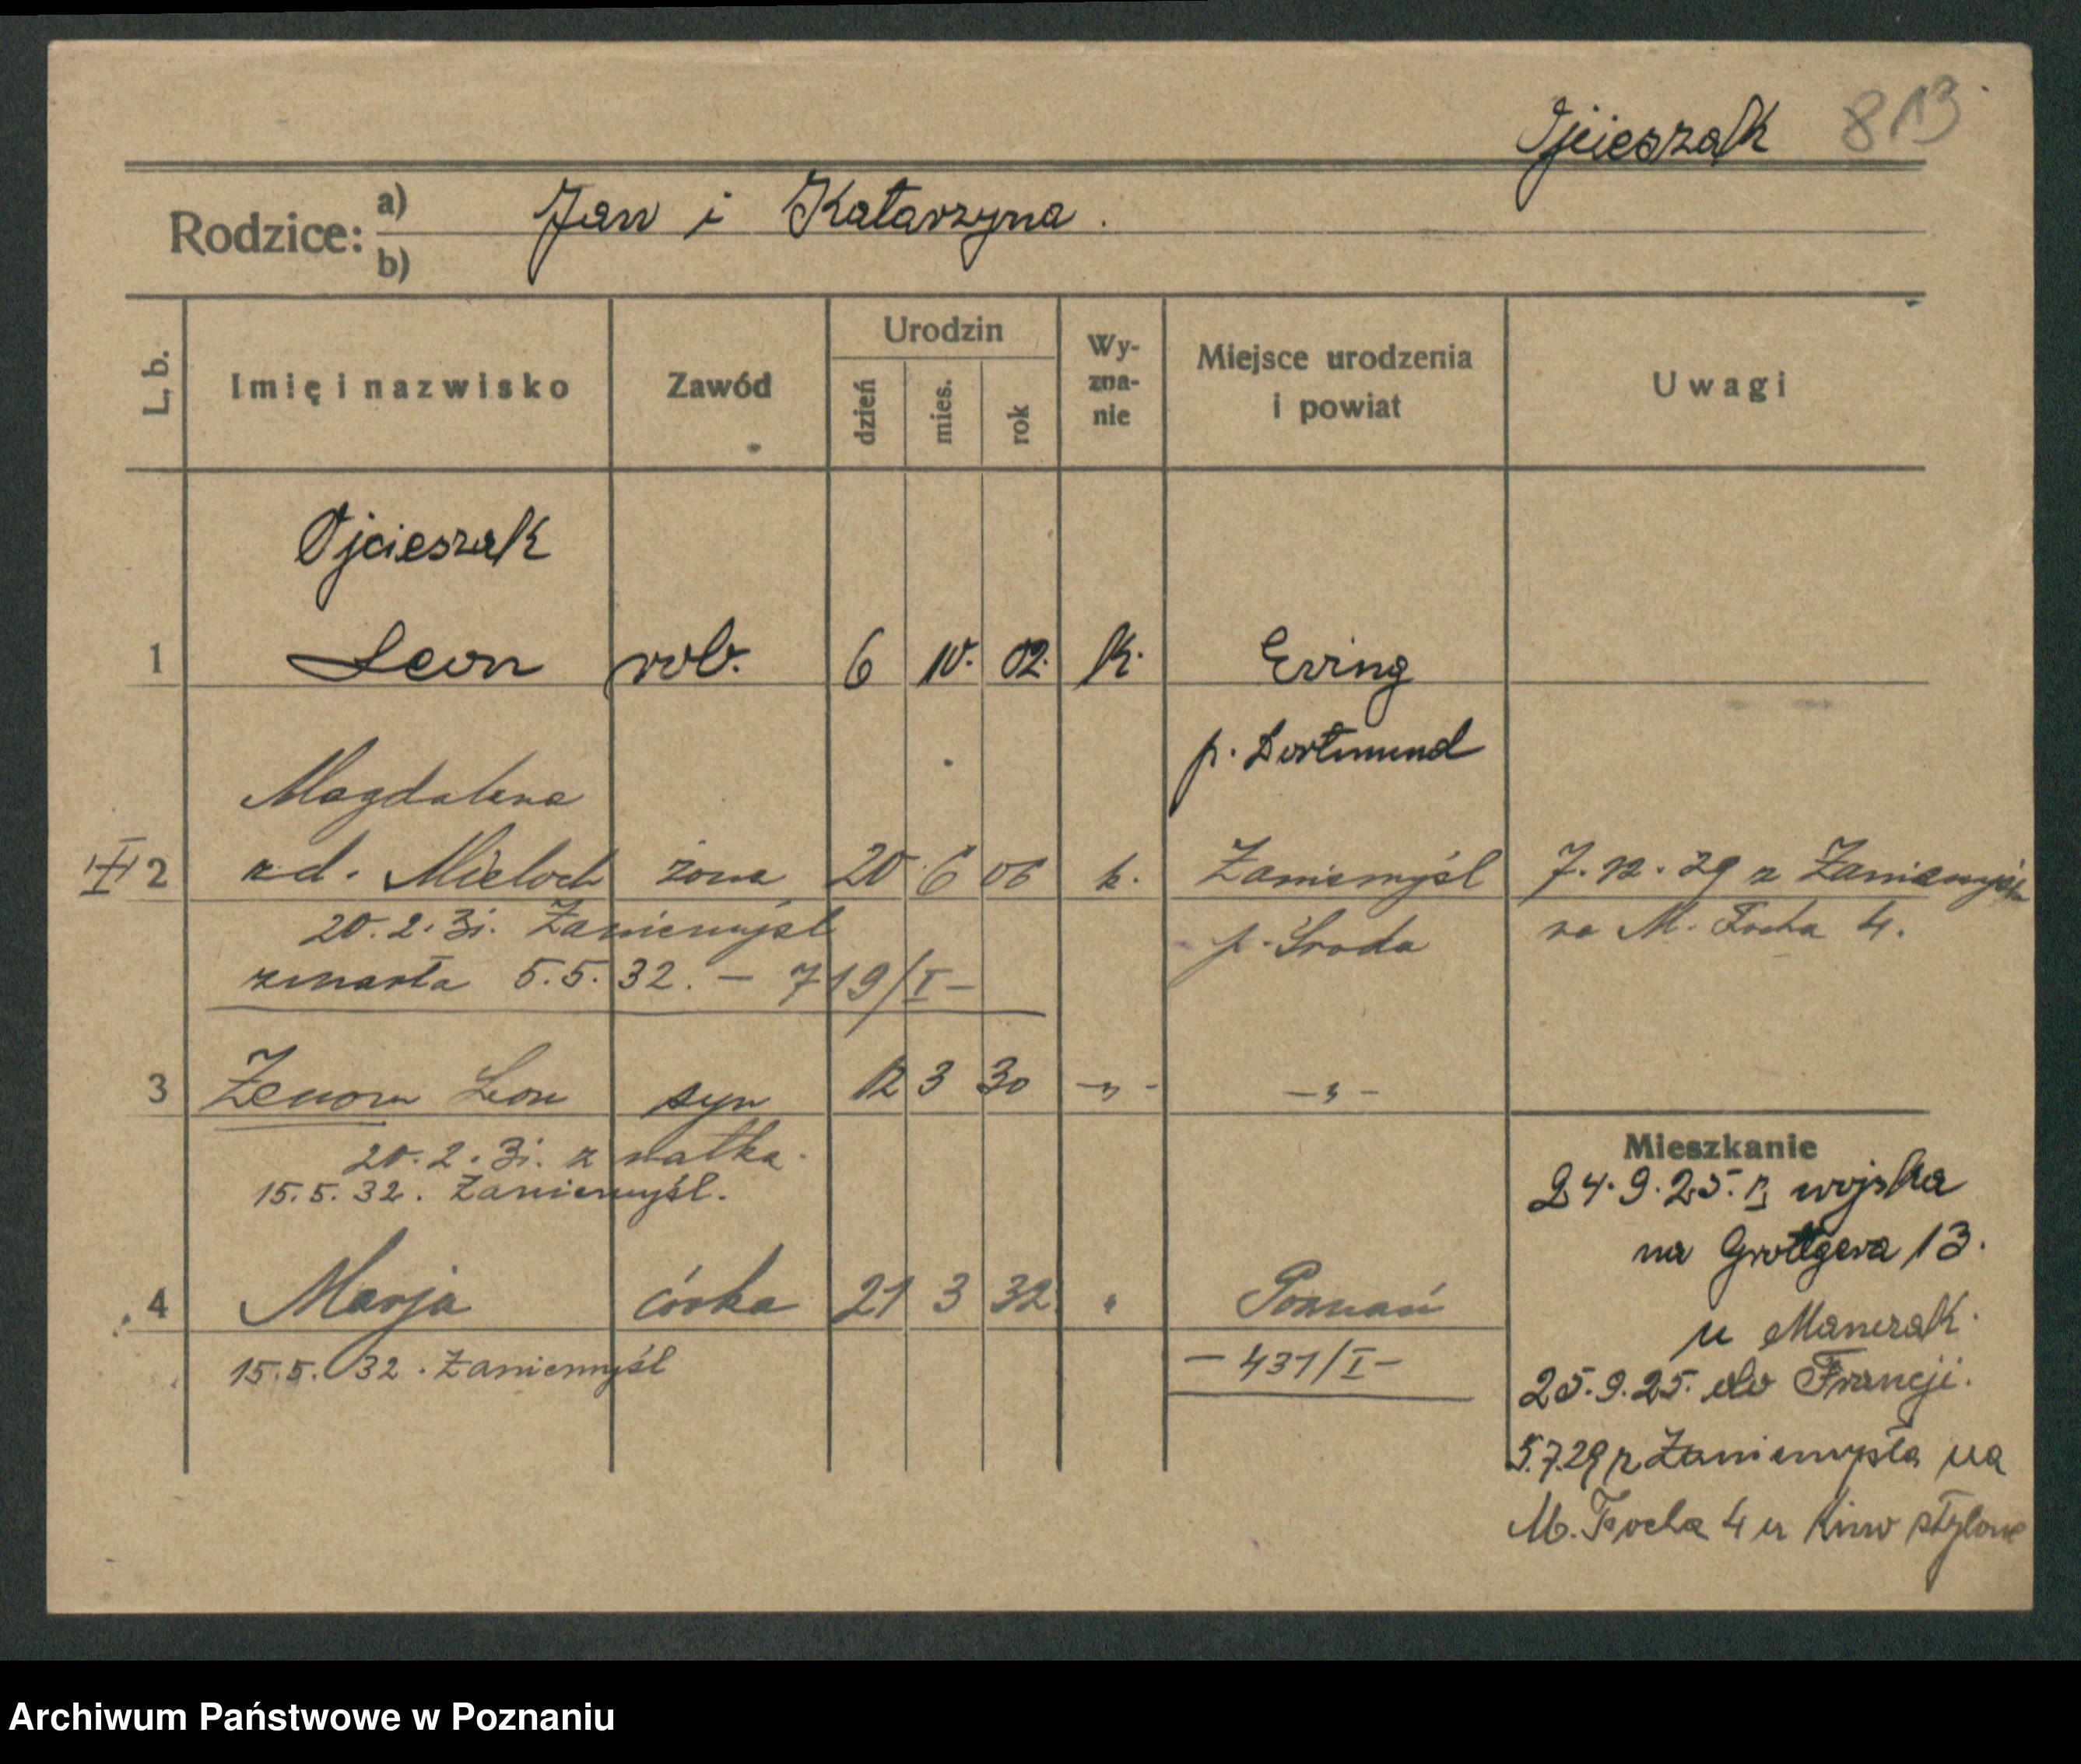 Ojcieszak 813
Rodzice: a) Jan i Katarzyna.
b)
L. b. Imię i nazwisko Zawód Urodzin dzień mies. rok Wy-zna-nie Miejsce urodzenia i powiat Uwagi
Ojcieszak
1 Leon rob. 6 10. 02. k. Eving
p. Dortmund
Magdalena
2 z d. Mieloch żona 20 6 06 k. Zaniemyśl 7.12.29 z Zaniemyśla
20.2.31. Zaniemyśl p. Środa na M. Focha 4.
zmarła 5.5.32. – 719/I –
3 Zenon Leon syn 12 3 30 –„– –„–
20.2.31. z matką.
15.5.32. Zaniemyśl.
4 Marja córka 21 3 32 „ Poznań
15.5.32. Zaniemyśl – 431/I –
Mieszkanie
24.9.25. z wojska
na Grottgera 13.
u Manczak.
25.9.25. do Francji.
5.7.29 z Zaniemyśla na
M. Focha 4 u Kino stylowe
Archiwum Państwowe w Poznaniu